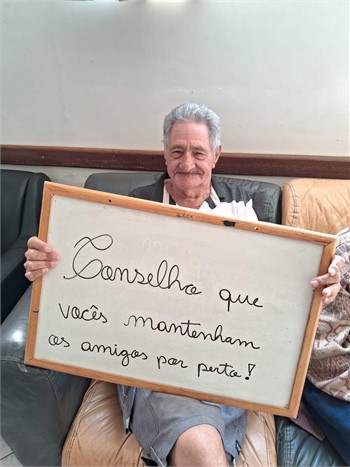 Conselho que
vocês mantenham
os amigos por perto!